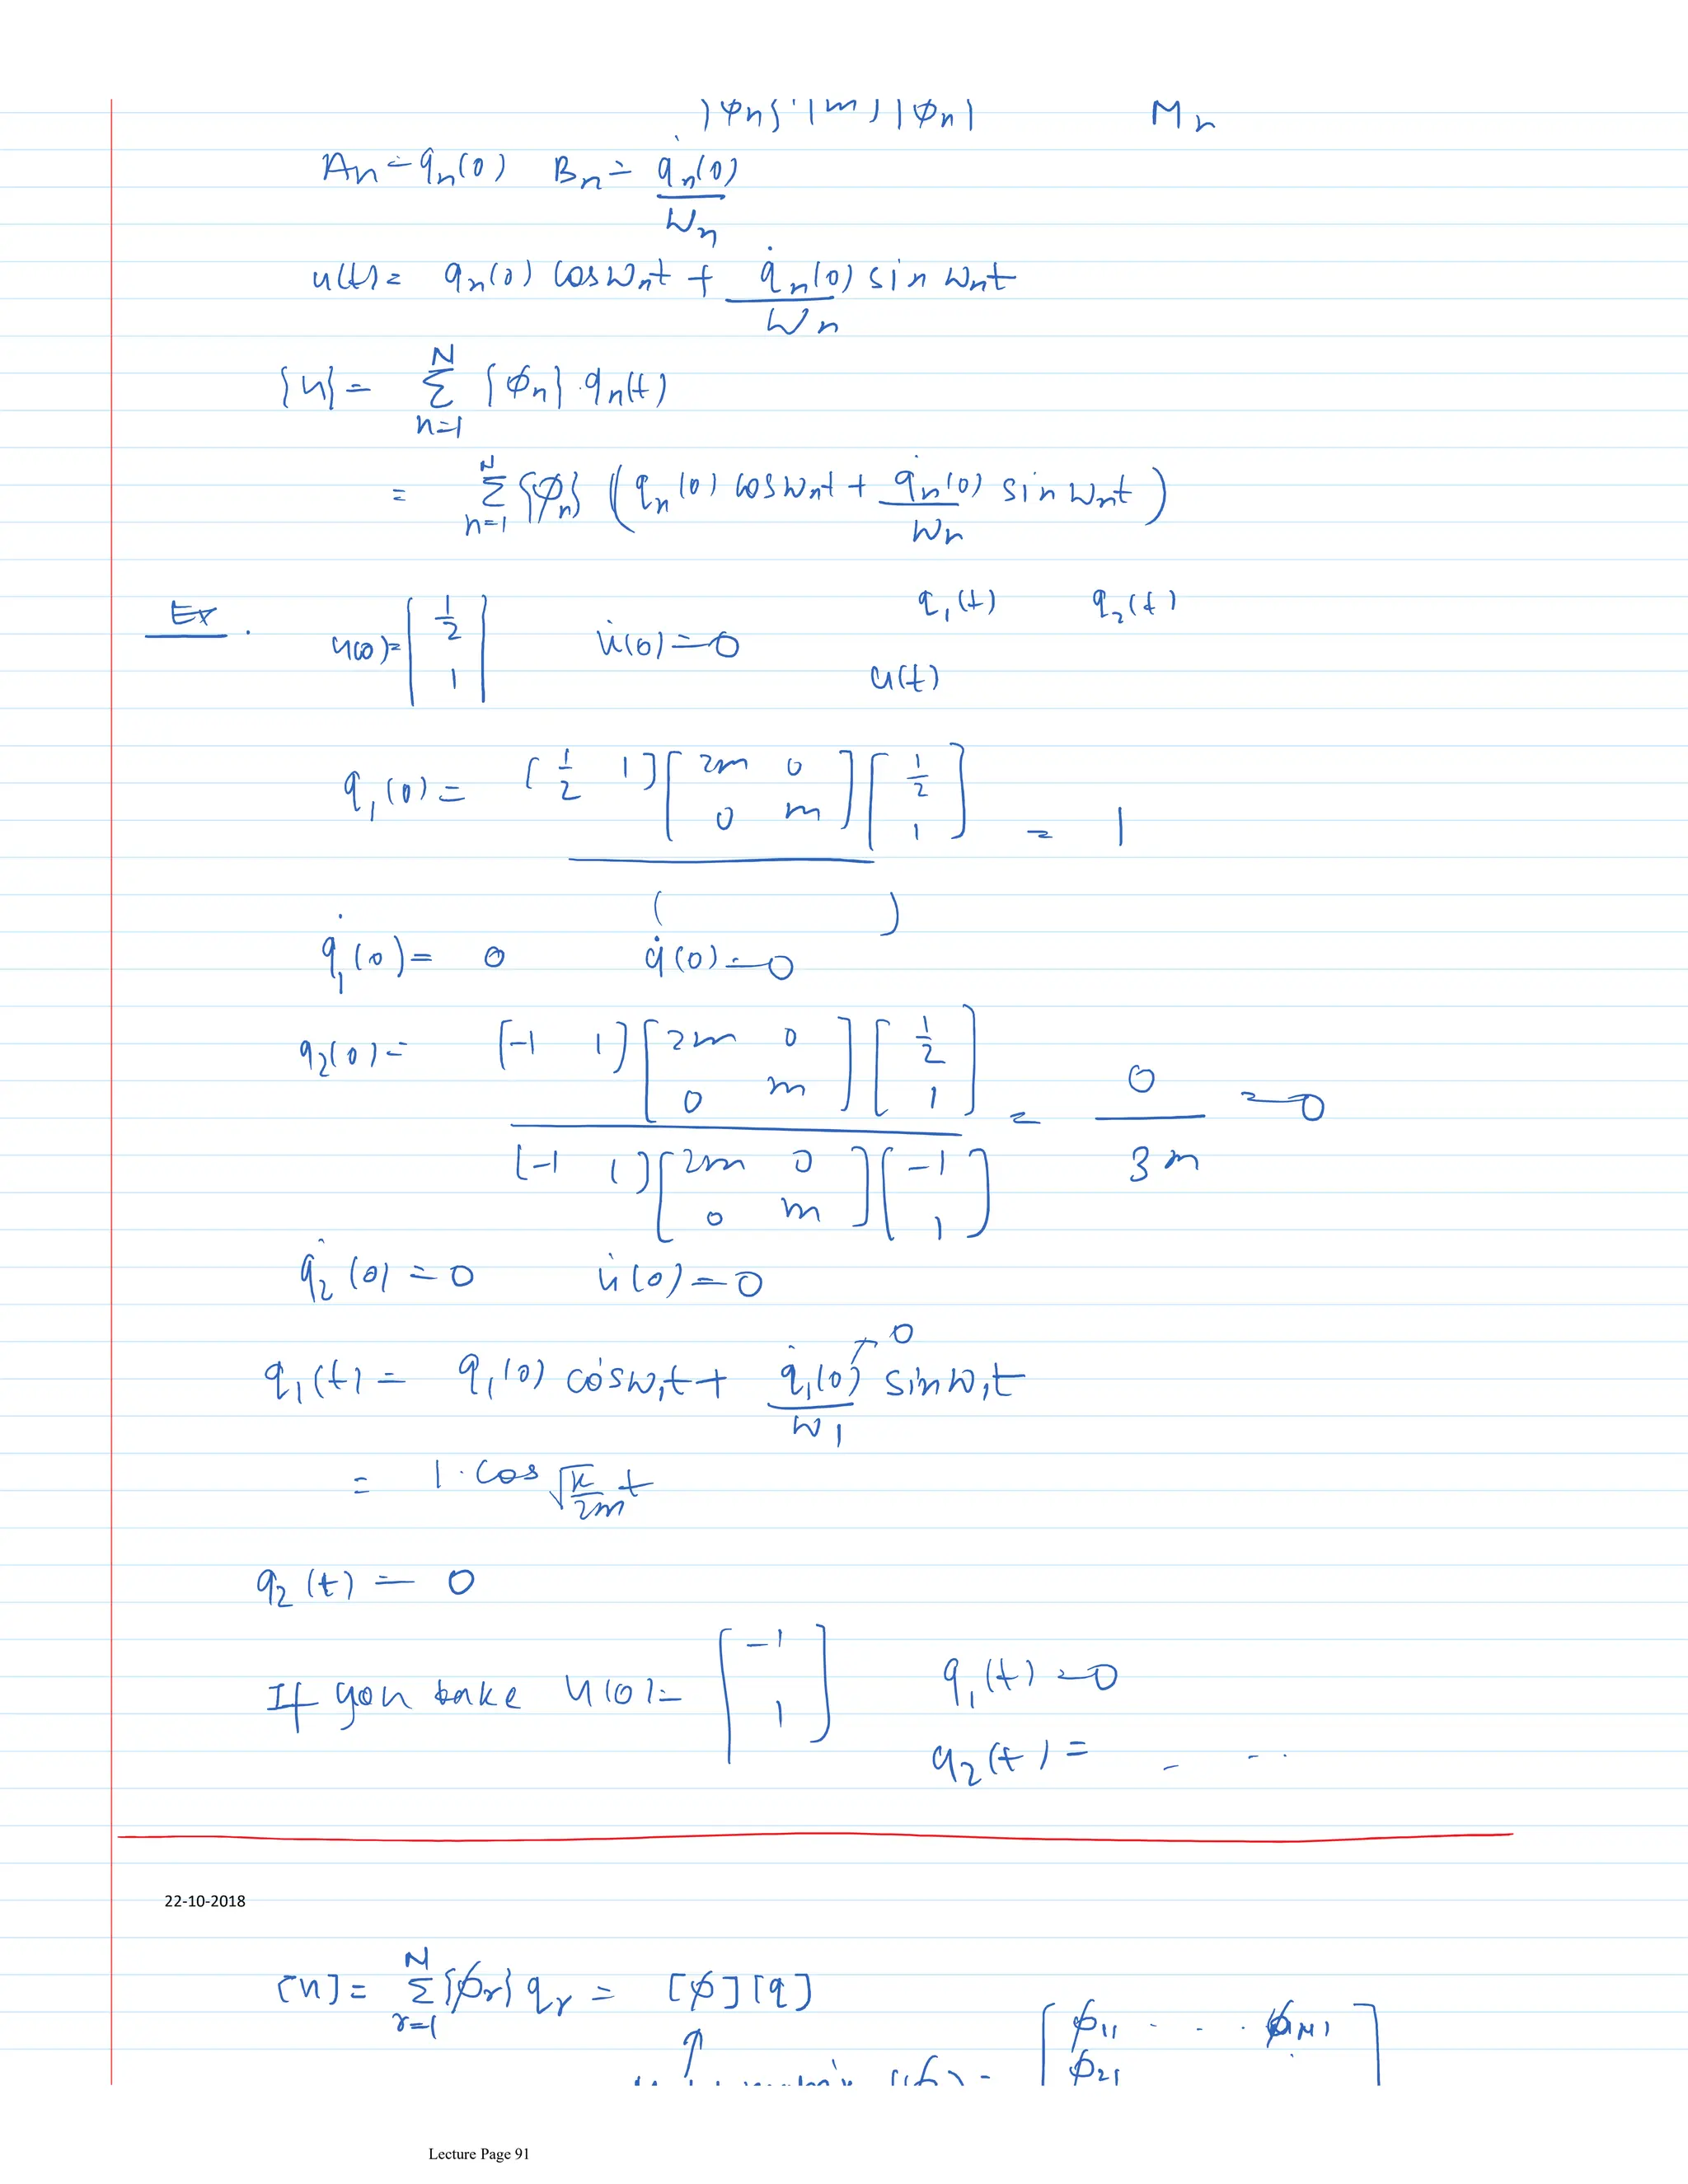 {φn}ᵀ[m]{φn} Mn
An = qn(0) Bn = q̇n(0)/ωn
u(t) = qn(0) cos ωnt + q̇n(0)/ωn sin ωnt
{u} = Σ_{n=1}^{N} {φn} qn(t)
= Σ_{n=1}^{N} {φn} (qn(0) cos ωnt + q̇n(0)/ωn sin ωnt)
Ex. u(0) = [1/2; 1] u̇(0) = 0 q1(t) q2(t)
u(t)
q1(0) = [1/2 1][2m 0; 0 m][1/2; 1] / ( ) = 1
q̇1(0) = 0 q̇(0) = 0
q2(0) = [-1 1][2m 0; 0 m][1/2; 1] / [-1 1][2m 0; 0 m][-1; 1] = 0/3m = 0
q̇2(0) = 0 u̇(0) = 0
q1(t) = q1(0) cos ω1t + q̇1(0)/ω1 → 0 sin ω1t
= 1. cos √(k/2m) t
q2(t) = 0
If you take u(0) = [-1; 1] q1(t) = 0
q2(t) = - - ..
22-10-2018
[u] = Σ_{r=1}^{N} {φr} qr = [φ][q]
↑ [φ11 - - . φN1
φ21
Lecture Page 91